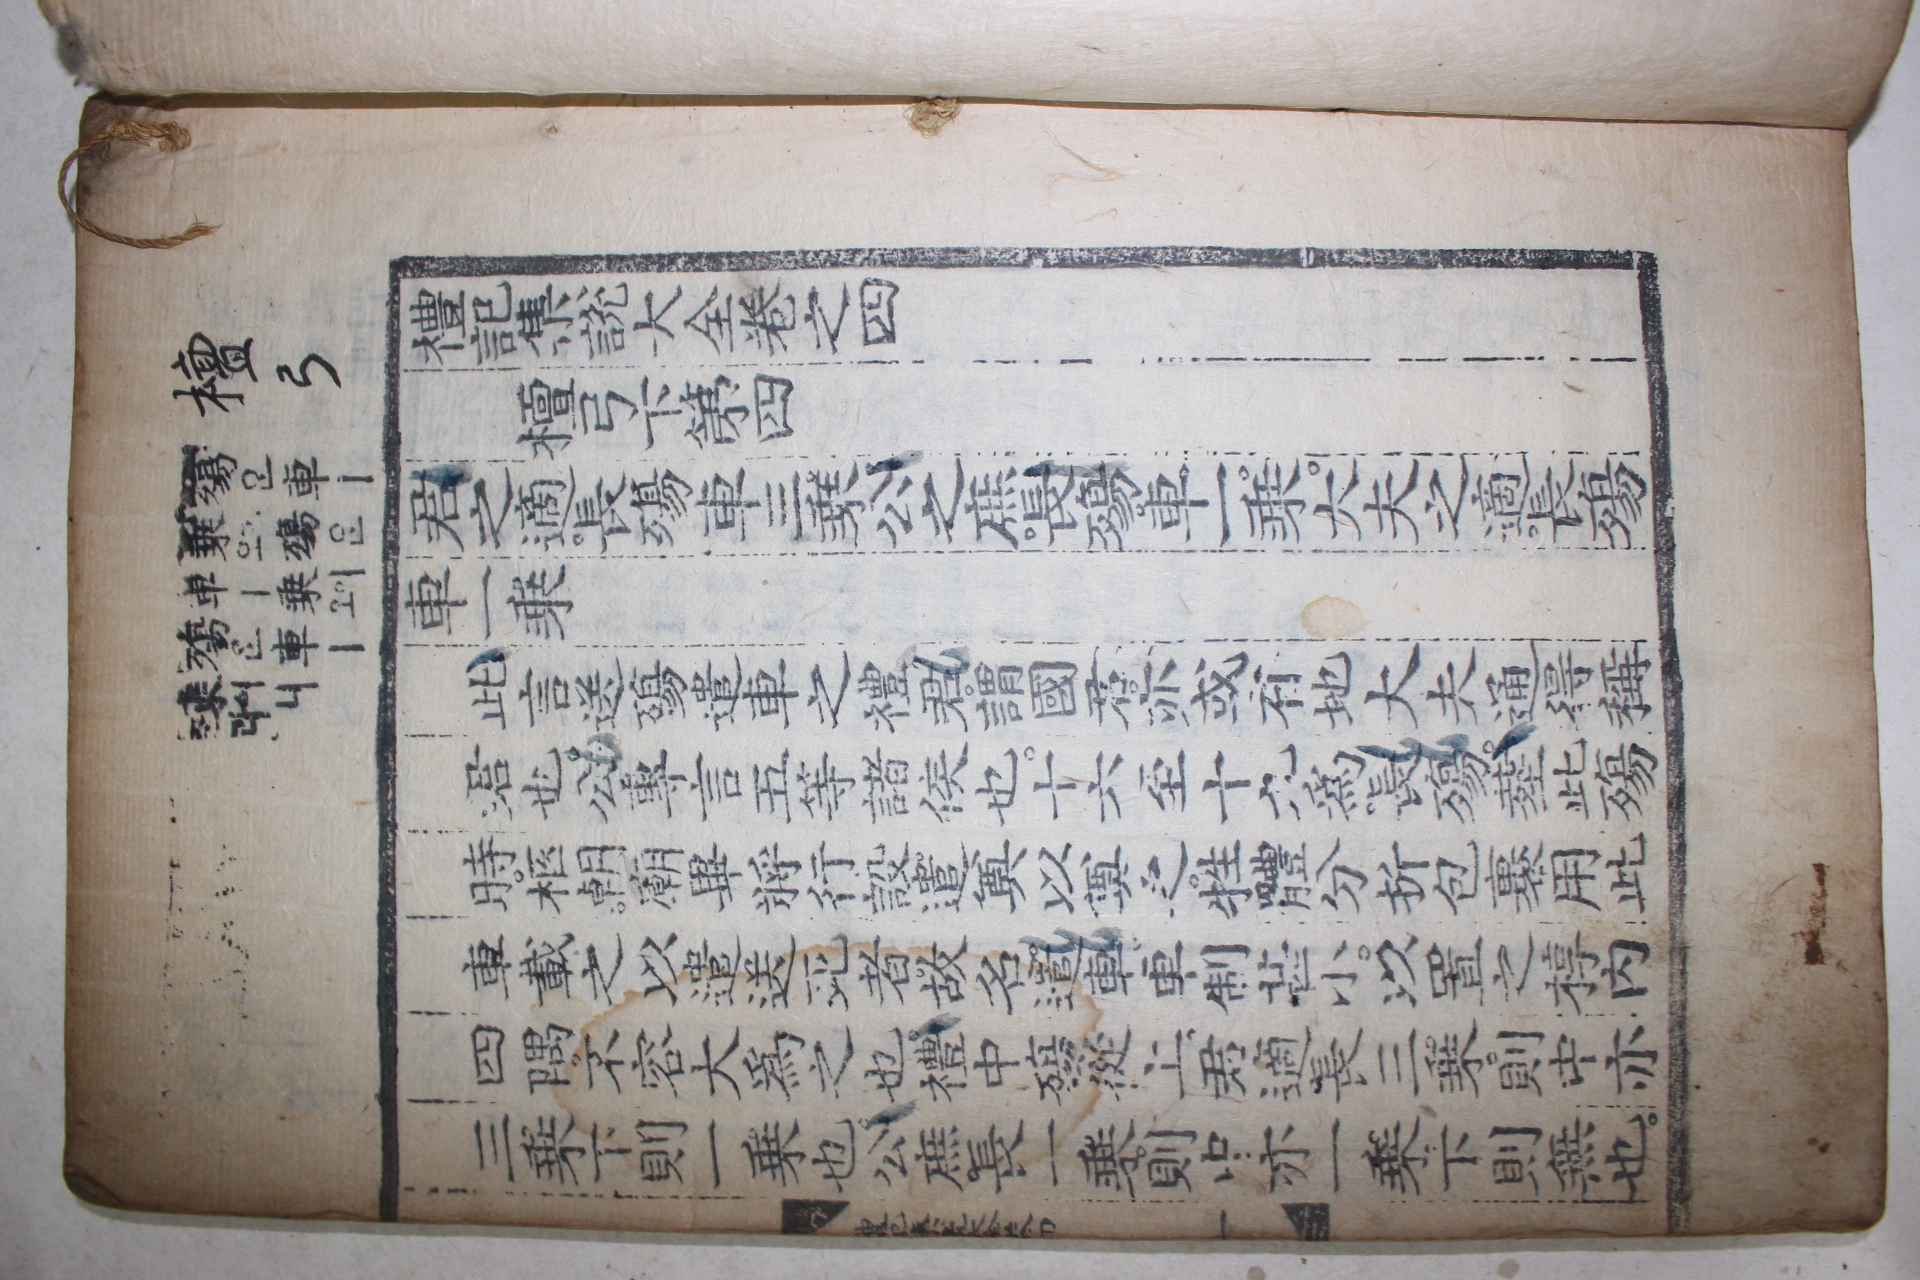 檀弓
殤은車ㅣ
乗오殤은
車ㅣ乗이오
殤은車ㅣ
乗이니라
禮記集説大全卷之四
檀弓下第四
君之適長殤車三乗公之庶長殤車一乗大夫之適長殤
車一乗
此言送殤遣車之禮君謂國君亦或有地大夫通得稱
君也公專言五等諸侯也十六至十九爲長殤葬此殤
時柩朝廟畢將行設遣奠以奠之牲體分折包裹用此
車載之以遣送死者故名遣車車制甚小以置之椁内
四隅不容大爲之也禮中殤從上君適長三乗則中亦
三乗下則一乗也公庶長一乗則中亦一乗下則無也